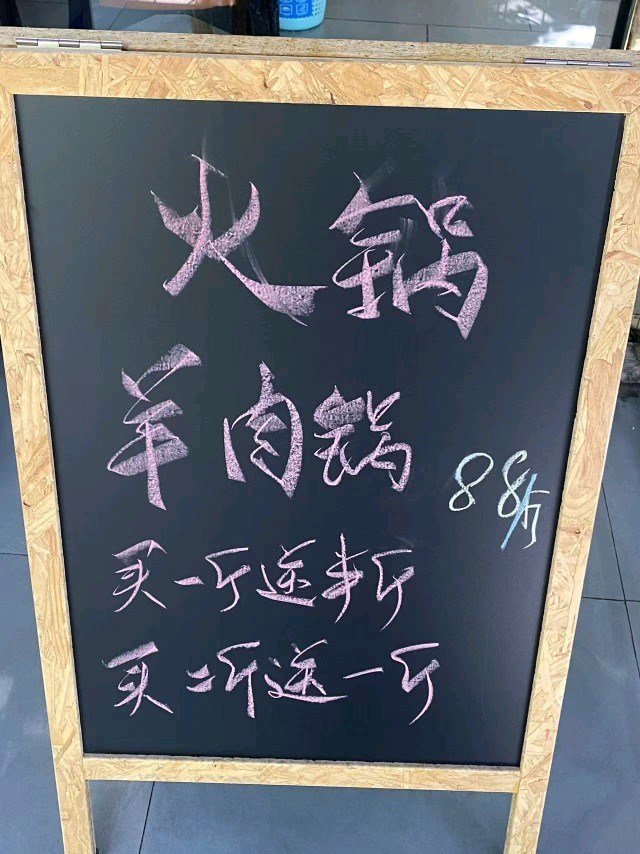 火锅
羊肉锅 88/斤
买一斤送半斤
买二斤送一斤